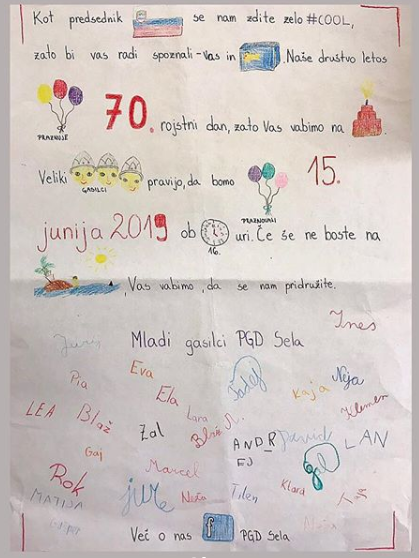 Kot predsednik se nam zdite zelo #COOL,
zato bi vas radi spoznali-Vas in . Naše društvo letos
PRAZNUJE 70. rojstni dan, zato Vas vabimo na
Veliki GASILCI pravijo, da bomo PRAZNOVALI 15.
junija 2019 ob 16. uri. Če še ne boste na
, Vas vabimo, da se nam pridružite.
Ines
Mladi gasilci PGD Sela
Eva
Pia Ela Kaja Neja
LEA Blaž Lara Klemen
Žal LAN
Gaj
Marcel
Rok
MATIJA jure Neža Tilen Klara
Več o nas f PGD Sela